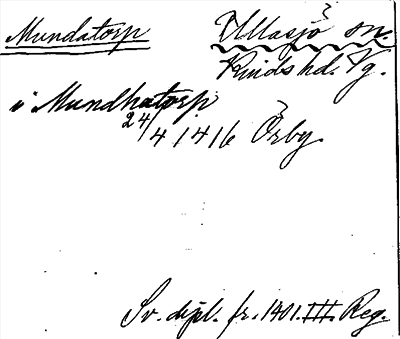 Mundatorp
Ullasjö sn.
Kinds hd. Vg.
i Mundhatorp
24/4 1416 Örby.
Sv. dipl. fr. 1401. III. Reg.